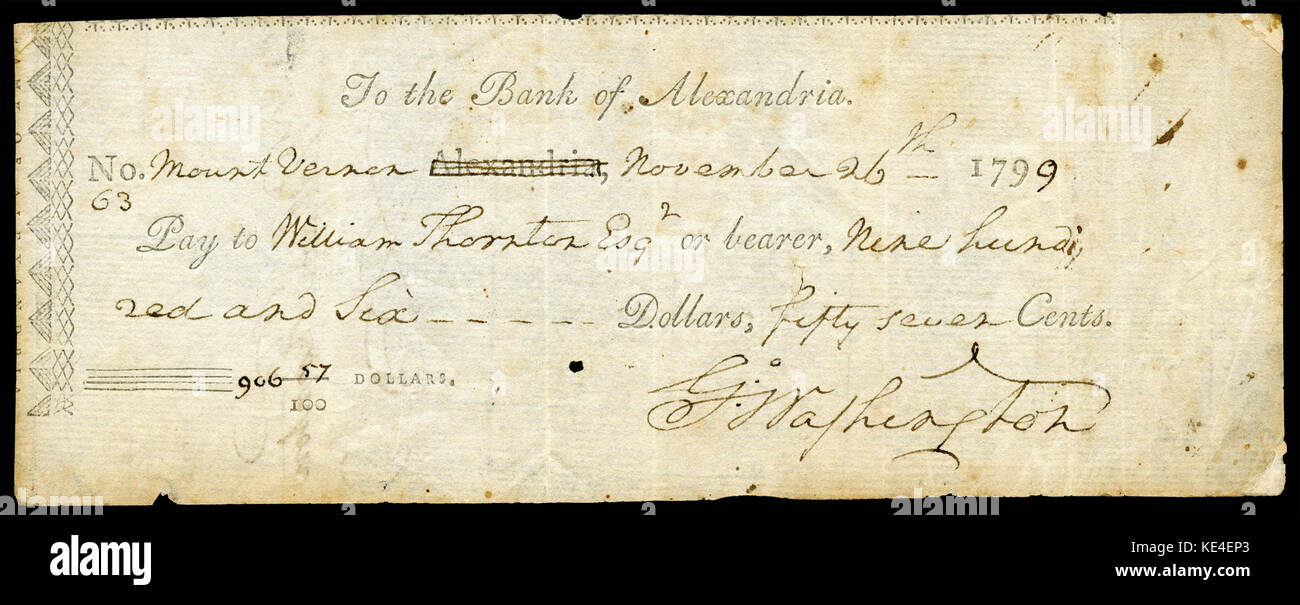 To the Bank of Alexandria.
No. Mount Vernon Alexandria, November 26th 1799
63
Pay to William Thornton Esqr or bearer, Nine hund
red and Six – – – – – Dollars, fifty seven Cents.
906 57/100 DOLLARS.
Go: Washington
alamy
Image ID: KE4EP3
www.alamy.com